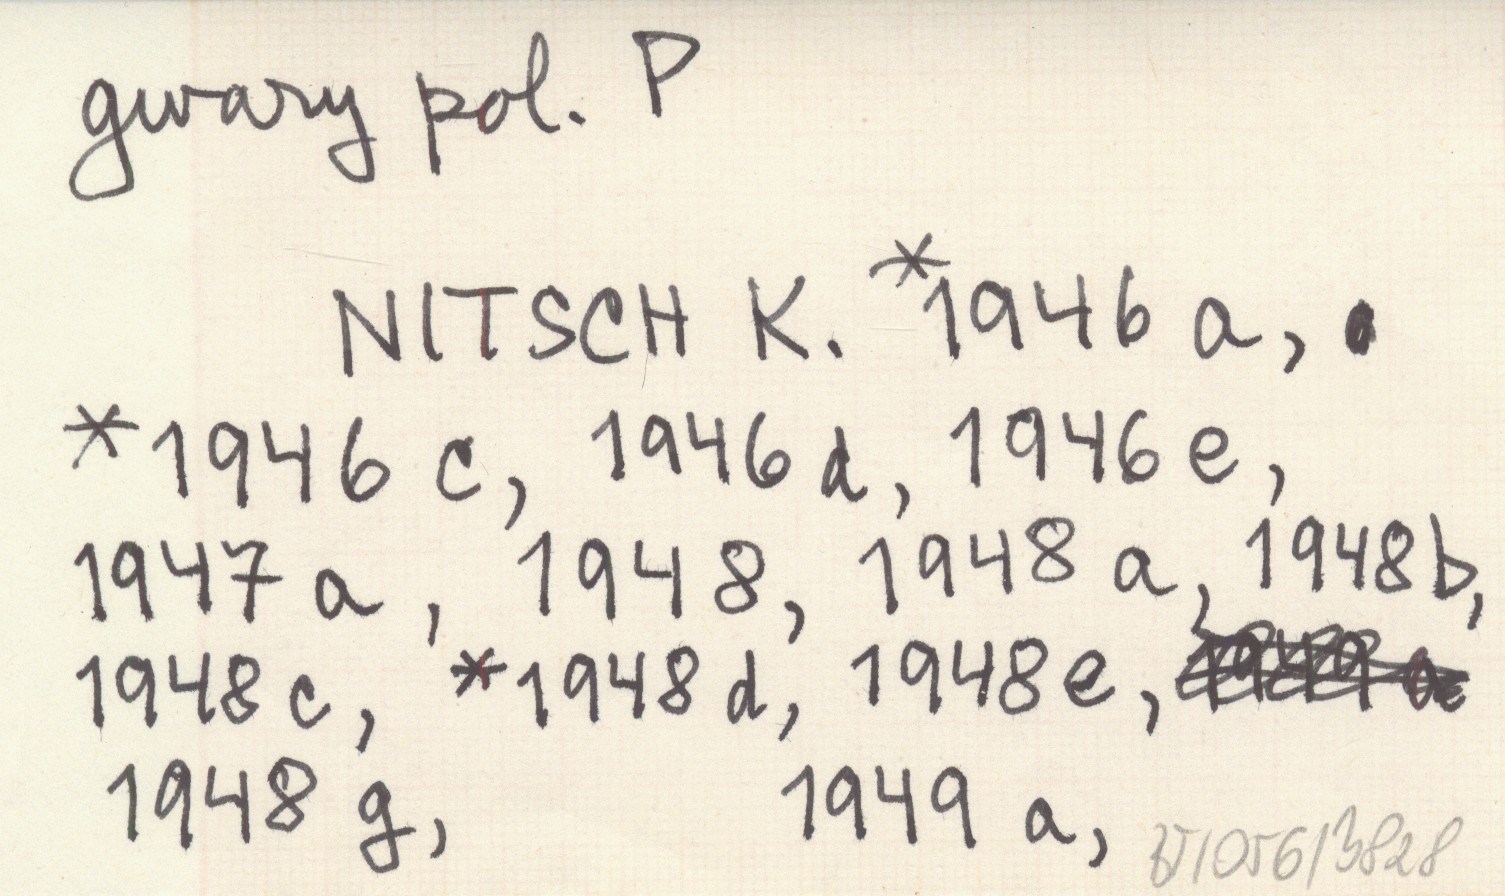 gwary pol. P
NITSCH K. *1946 a,
*1946 c, 1946 d, 1946 e,
1947 a, 1948, 1948 a, 1948 b,
1948 c, *1948 d, 1948 e,
1948 g, 1949 a,